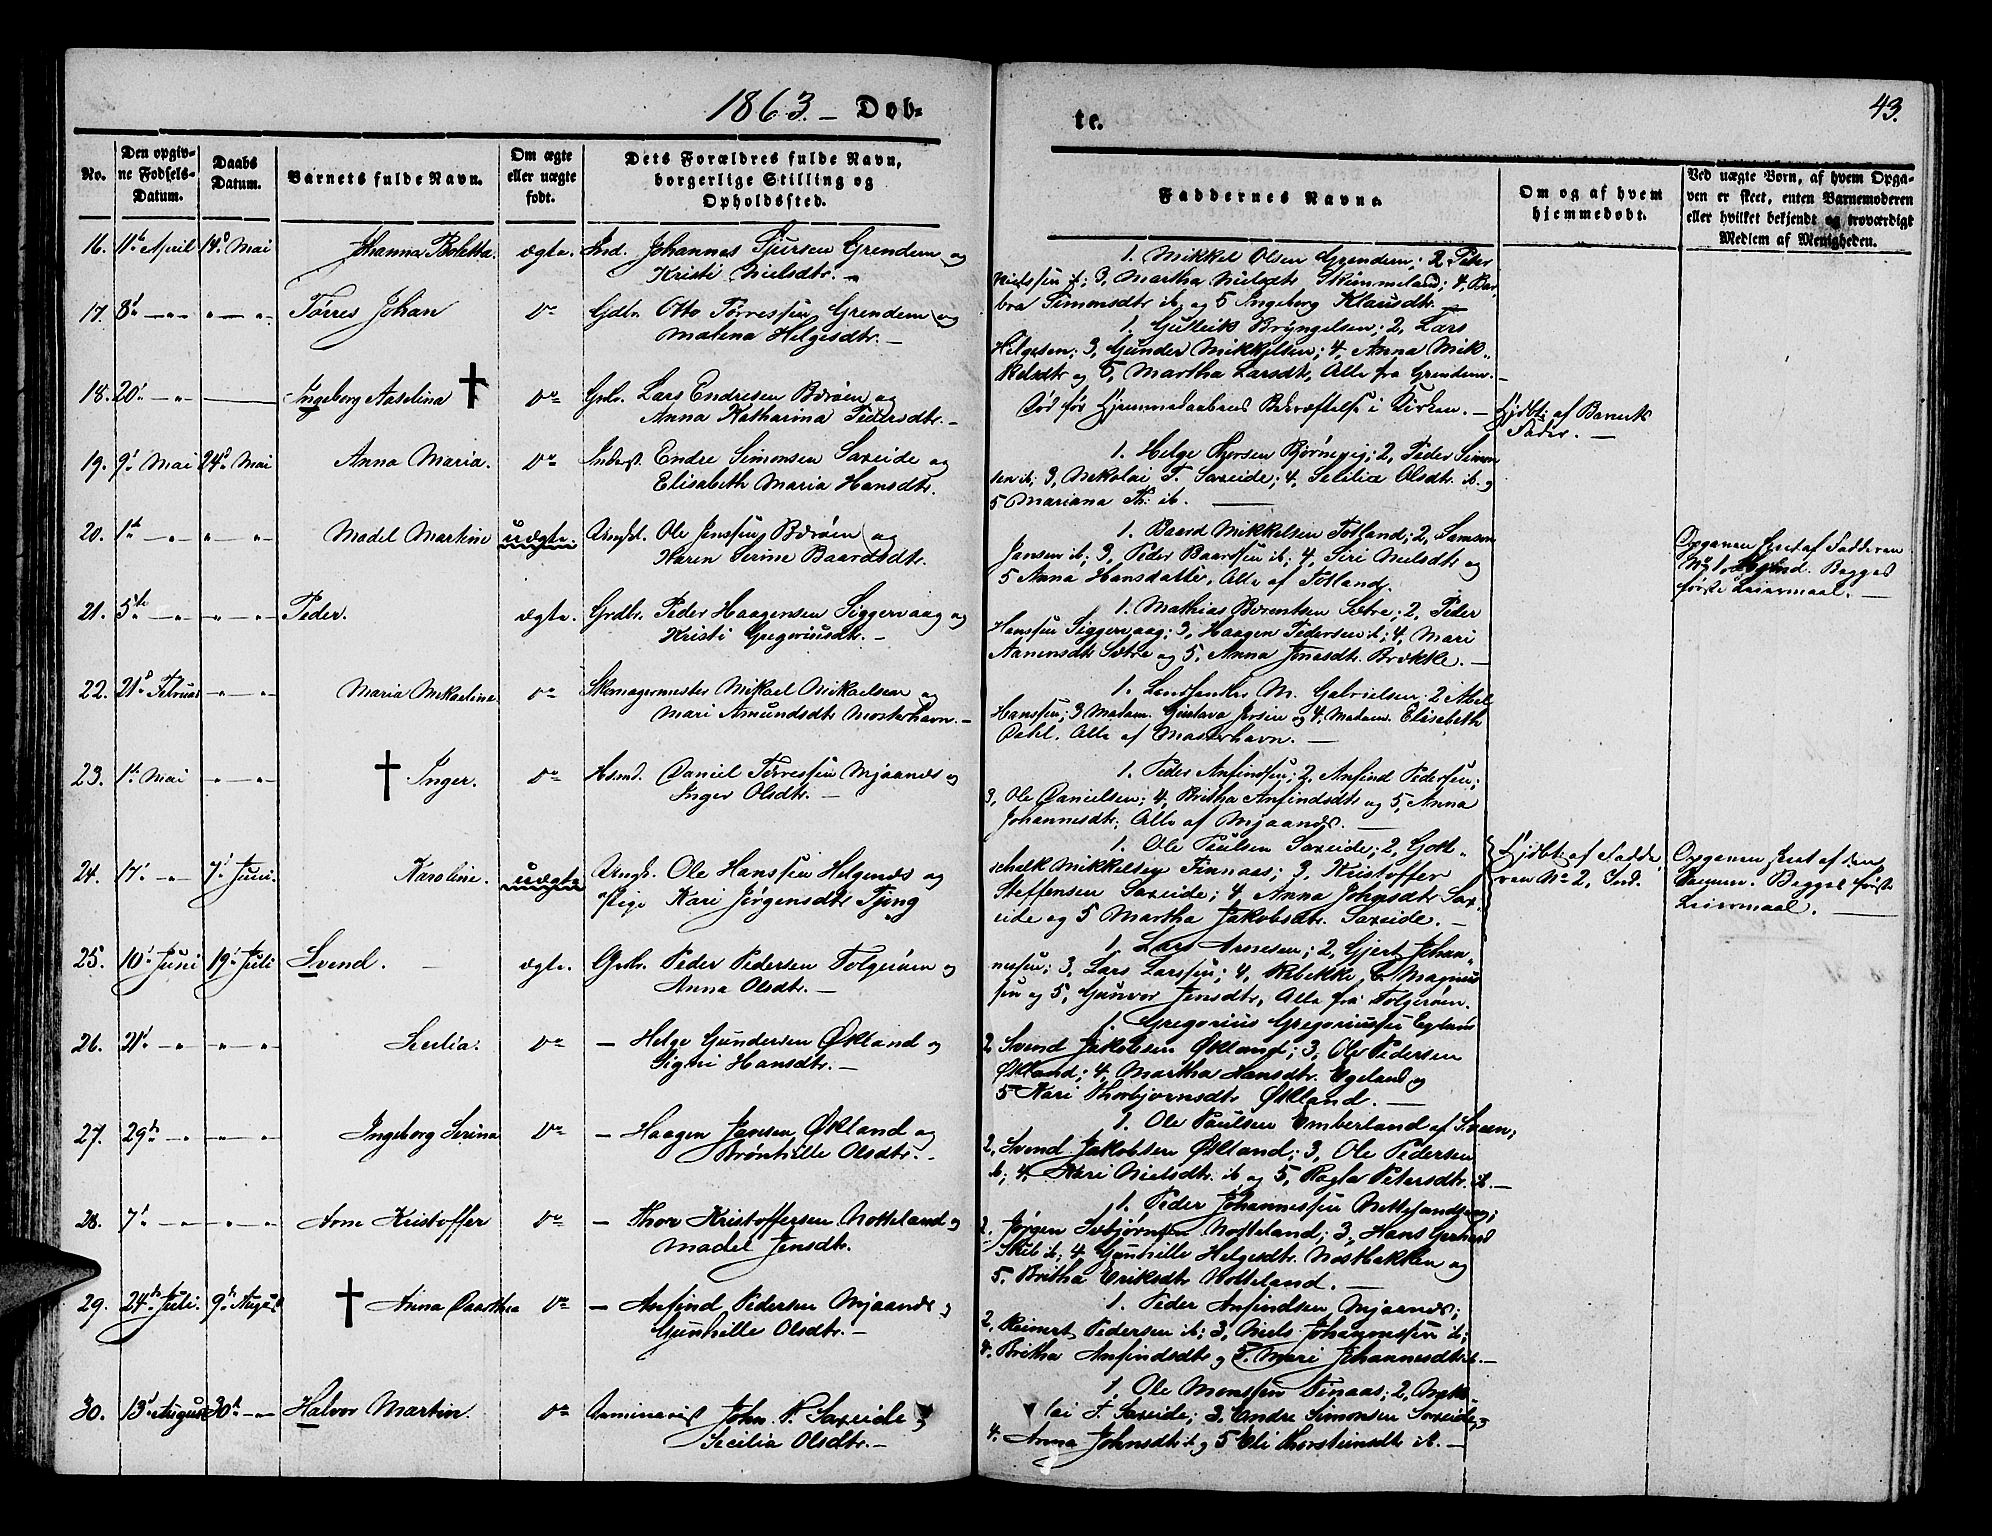 1863. – Døb=
te.
43.
No.
Den opgiv=
ne Fødsels=
Datum.
Daabs
Datum.
Barnets fulde Navn.
Om ægte
eller uægte
født.
Dets Forældres fulde Navn,
borgerlige Stilling og
Opholdssted.
Faddernes Navne.
Om og af hvem
hjemmedøbt.
Ved uægte Børn, af hvem Opga=
ven er skeet, enten Barnemoderen
eller hvilket bekjendt og troværdigt
Medlem af Menigheden.
16. 11te April 14d Mai Johanna Boletta. ægte. Ind. Johannes Sjursen Grendem og
Kristi Nielsdtr. –
1. Mikkel Olsen Grendem; 2, Peder
Nielssen ib; 3, Martha Nielsdtr Skimmeland; 4, Bar=
bra Simonsdtr ib og 5 Ingeborg Klausdtr –
17. 8d – „ „ – „ Tørres Johan do Gdbr. Otto Tørressen Grendem og
Malena Helgesdtr. –
1. Gulleik Bryngelsen; 2, Lars
Helgesen; 3, Gunder Mikkelsen; 4, Anna Mik=
kelsdtr og 5, Martha Larsdtr, Alle fra Grendem. –
18. 20d – „ — Ingeborg Aaselina † do Grbr. Lars Endresen Børøen og
Anna Katharina Pedersdtr. –
Død før Hjemmedaabens Bekræftelse i Kirken. –
Hjdbt: af Barnets
Fader. –
19. 9d Mai 24d Mai Anna Maria. do Inderst. Endre Simonsen Saxeide og
Elisabeth Maria Hansdtr.
1. Helge Thorsen Bjørnevig; 2, Peder Simon
sen ib; 3, Nikolai T. Saxeide; 4, Secilia Olsdtr ib og
5 Mariana Th: ib. —
20. 1te – „ „ – „ Madel Martine uægte. Ungkl. Ole Jenssen Børøen og
Karen Serine Baardsdtr.
1. Baard Mikkelsen Totland; 2, Samson
Jansen ib; 3, Peder Baardsen ib; 4, Siri Nielsdtr og
5 Anna Hansdatter, Alle af Totland.
Opgaven skeet af Fadderen
No 1. Begges
første Leiermaal. –
21. 5te – „ „ – „ Peder. ægte. Grdbr. Peder Haagensen Siggervaag og
Kristi Gregoriusdtr. –
1. Mathias Berentsen Sætre; 2, Peder
Hanssen Siggervaag; 3, Haagen Pedersen ib; 4, Mari
Aanensdtr Sætre og 5, Anna Jensdtr. Brække. –
22. 21d Februar „ – „ Maria Mikaeline do Skomagermester Mikael Mikaelsen og
Mari Amundsdtr Mosterhavn. –
1. M. Gabrielsen; 2 Abel
Hanssen; 3 Madam. Gustava Jersin og 4, Madam. Elisabeth
Dahl. Alle af Mosterhavn. –
23. 1te Mai „ – „ † Inger. do Hsmd. Daniel Tørressen Mjaanes og
Inger Olsdtr. –
1. Peder Anfindsen; 2, Anfind Pedersen;
3, Ole Danielsen; 4, Britha Anfindsdtr og 5, Anna
Johannesdtr; Alle af Mjaanes. —
24. 17d – „ 7d Juni. Karoline. uægte Ungk. Ole Hanssen Helgenæs og
Pige Kari Jørgensdtr Tjong
1. Ole Paulsen Saxeide; 2, Gott=
schalk Mikkelsen Finnaas; 3, Kristoffer
Steffensen Saxeide; 4 Anna Johnsdtr Sax=
eide og 5 Martha Jakobsdtr. Saxeide. –
Hjdbt: af Fadde
ren No 2, Ind.
Opgaven skeet af den
Samme. Begges første
Leiermaal. —
25. 10d Juni 19d Juli Svend. – ægte. Grdbr. Peder Pedersen Folgerøen og
Anna Olsdtr. –
1. Lars Arnesen; 2, Gjert Johan=
nessen; 3, Lars Larssen; 4, Rebekka Magnus
sen og 5, Gunvor Jensdtr, Alle fra Folgerøen.
26. 21d – „ „ – „ Secilia. do – Helge Gundersen Økland og
Signi Hansdtr. –
1. Gregorius Gregoriussen Egeland
2 Svend Jakobsen Økland; 3, Ole Pedersen
Økland; 4, Martha Hansdtr. Egeland og
5 Kari Thorbjørnsdtr Økland. –
27. 29de – „ „ – „ Ingeborg Serina do – Haagen Jansen Økland og
Brønhille Olsdtr. –
1. Ole Paulsen Emberland af Sveen;
2, Svend Jakobsen Økland; 3, Ole Pedersen
ib; 4, Kari Nielsdtr. ib og 5, Ragla Petersdtr. ib. –
28. 7d – „ „ – „ Arne Kristoffer do – Thor Kristoffersen Notteland og
Madel Jensdtr.
1. Peder Johannessen Nottelandsvaag;
2. Jørgen Sæbjørnsen Notteland; 3, Hans Gerhard
Skib ib; 4 Gunhille Helgesdtr. Nostbakken og
5. Britha Eriksdtr Notteland. –
29. 24de Juli. 9de August † Anna Daarthea do – Anfind Pedersen Mjaanes og
Gunhille Olsdtr. –
1. Peder Anfindsen Mjaanes;
2, Reinert Pedersen ib; 3, Niels Johannessen ib;
4. Britha Anfindsdtr og 5. Mari Johannesdtr ib –
30. 13d August 30te – „ Halvor Martin. do Seminarist John P. Saxeide og
Secilia Olsdtr. –
1. Ole Monssen Finaas; 2, Niko=
lai T. Saxeide; 3, Endre Simonsen Saxeide,
4. Anna Johnsdtr ib og 5 Eli Thorsteinsdtr ib. –